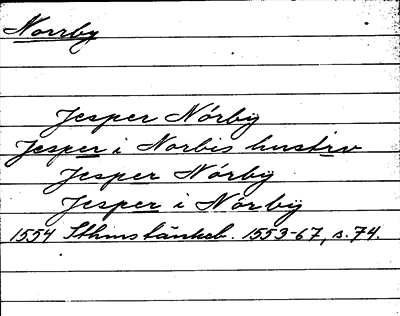 Norrby
Jesper Nórby
Jesper i Norbis hustrv
Jesper Nórby
Jesper i Nórby
1554 Sthms tänkeb. 1553-67, s. 74.